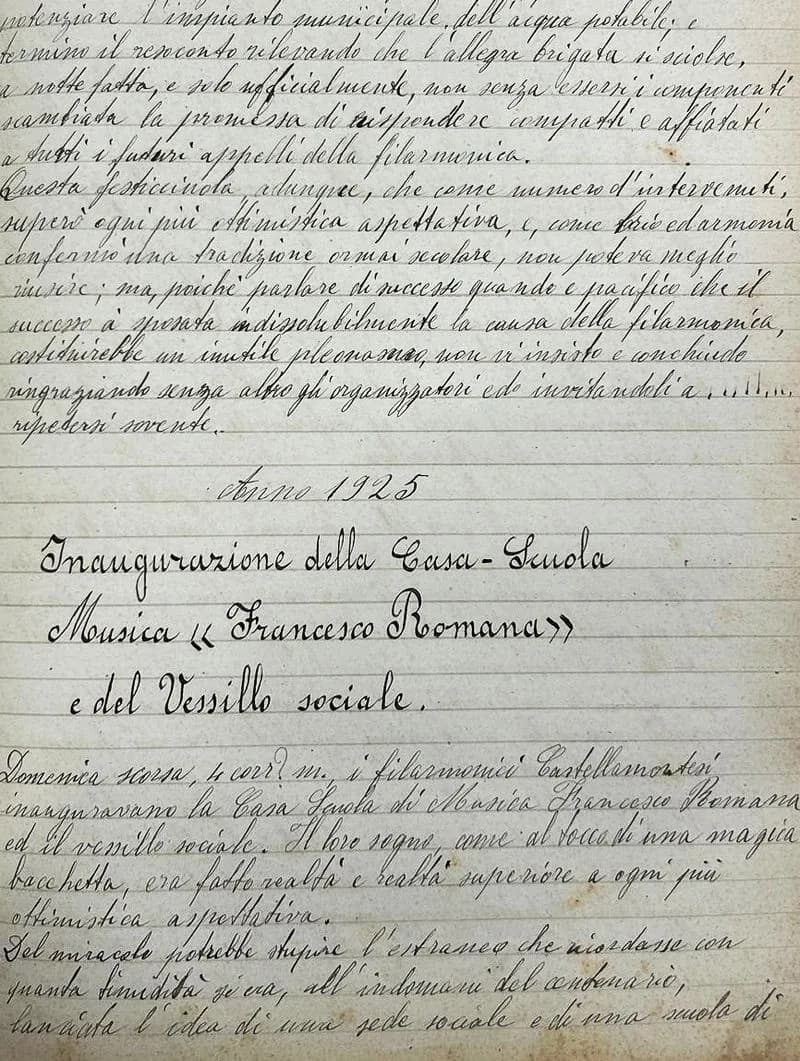 potenziare l'impianto municipale, dell'acqua potabile; e
termino il resoconto rilevando che l'allegra brigata si sciolse,
a notte fatta, e solo ufficialmente, non senza essersi i componenti
scambiata la promessa di rispondere compatti e affiatati
a tutti i futuri appelli della filarmonica.
Questa festicciuola, adunque, che come numero d'intervenuti,
superò ogni più ottimistica aspettativa, e, come brio ed armonia
confermò una tradizione ormai secolare, non poteva meglio
riusire; ma, poichè parlare di successo quando e pacifico che il
successo à sposata indissolubilmente la causa della filarmonica,
costituirebbe un inutile pleonasmo, non vi insisto e conchiudo
ringraziando senza altro gli organizzatori ed invitandoli a .......
ripetersi sovente..
Anno 1925
Inaugurazione della Casa-Scuola
Musica « Francesco Romana»
e del Vessillo sociale.
Domenica scorsa, 4 corr. m., i filarmonici Castellamontesi
inauguravano la Casa Scuola di Musica Francesco Romana
ed il vessillo sociale. Il loro sogno, come al tocco di una magica
bacchetta, era fatto realtà e realtà superiore a ogni più
ottimistica aspettativa.
Del miracolo potrebbe stupire l'estraneo che ricordasse con
quanta timidità si era, all'indomani del centenario,
lanciata l'idea di una sede sociale e di una scuola di